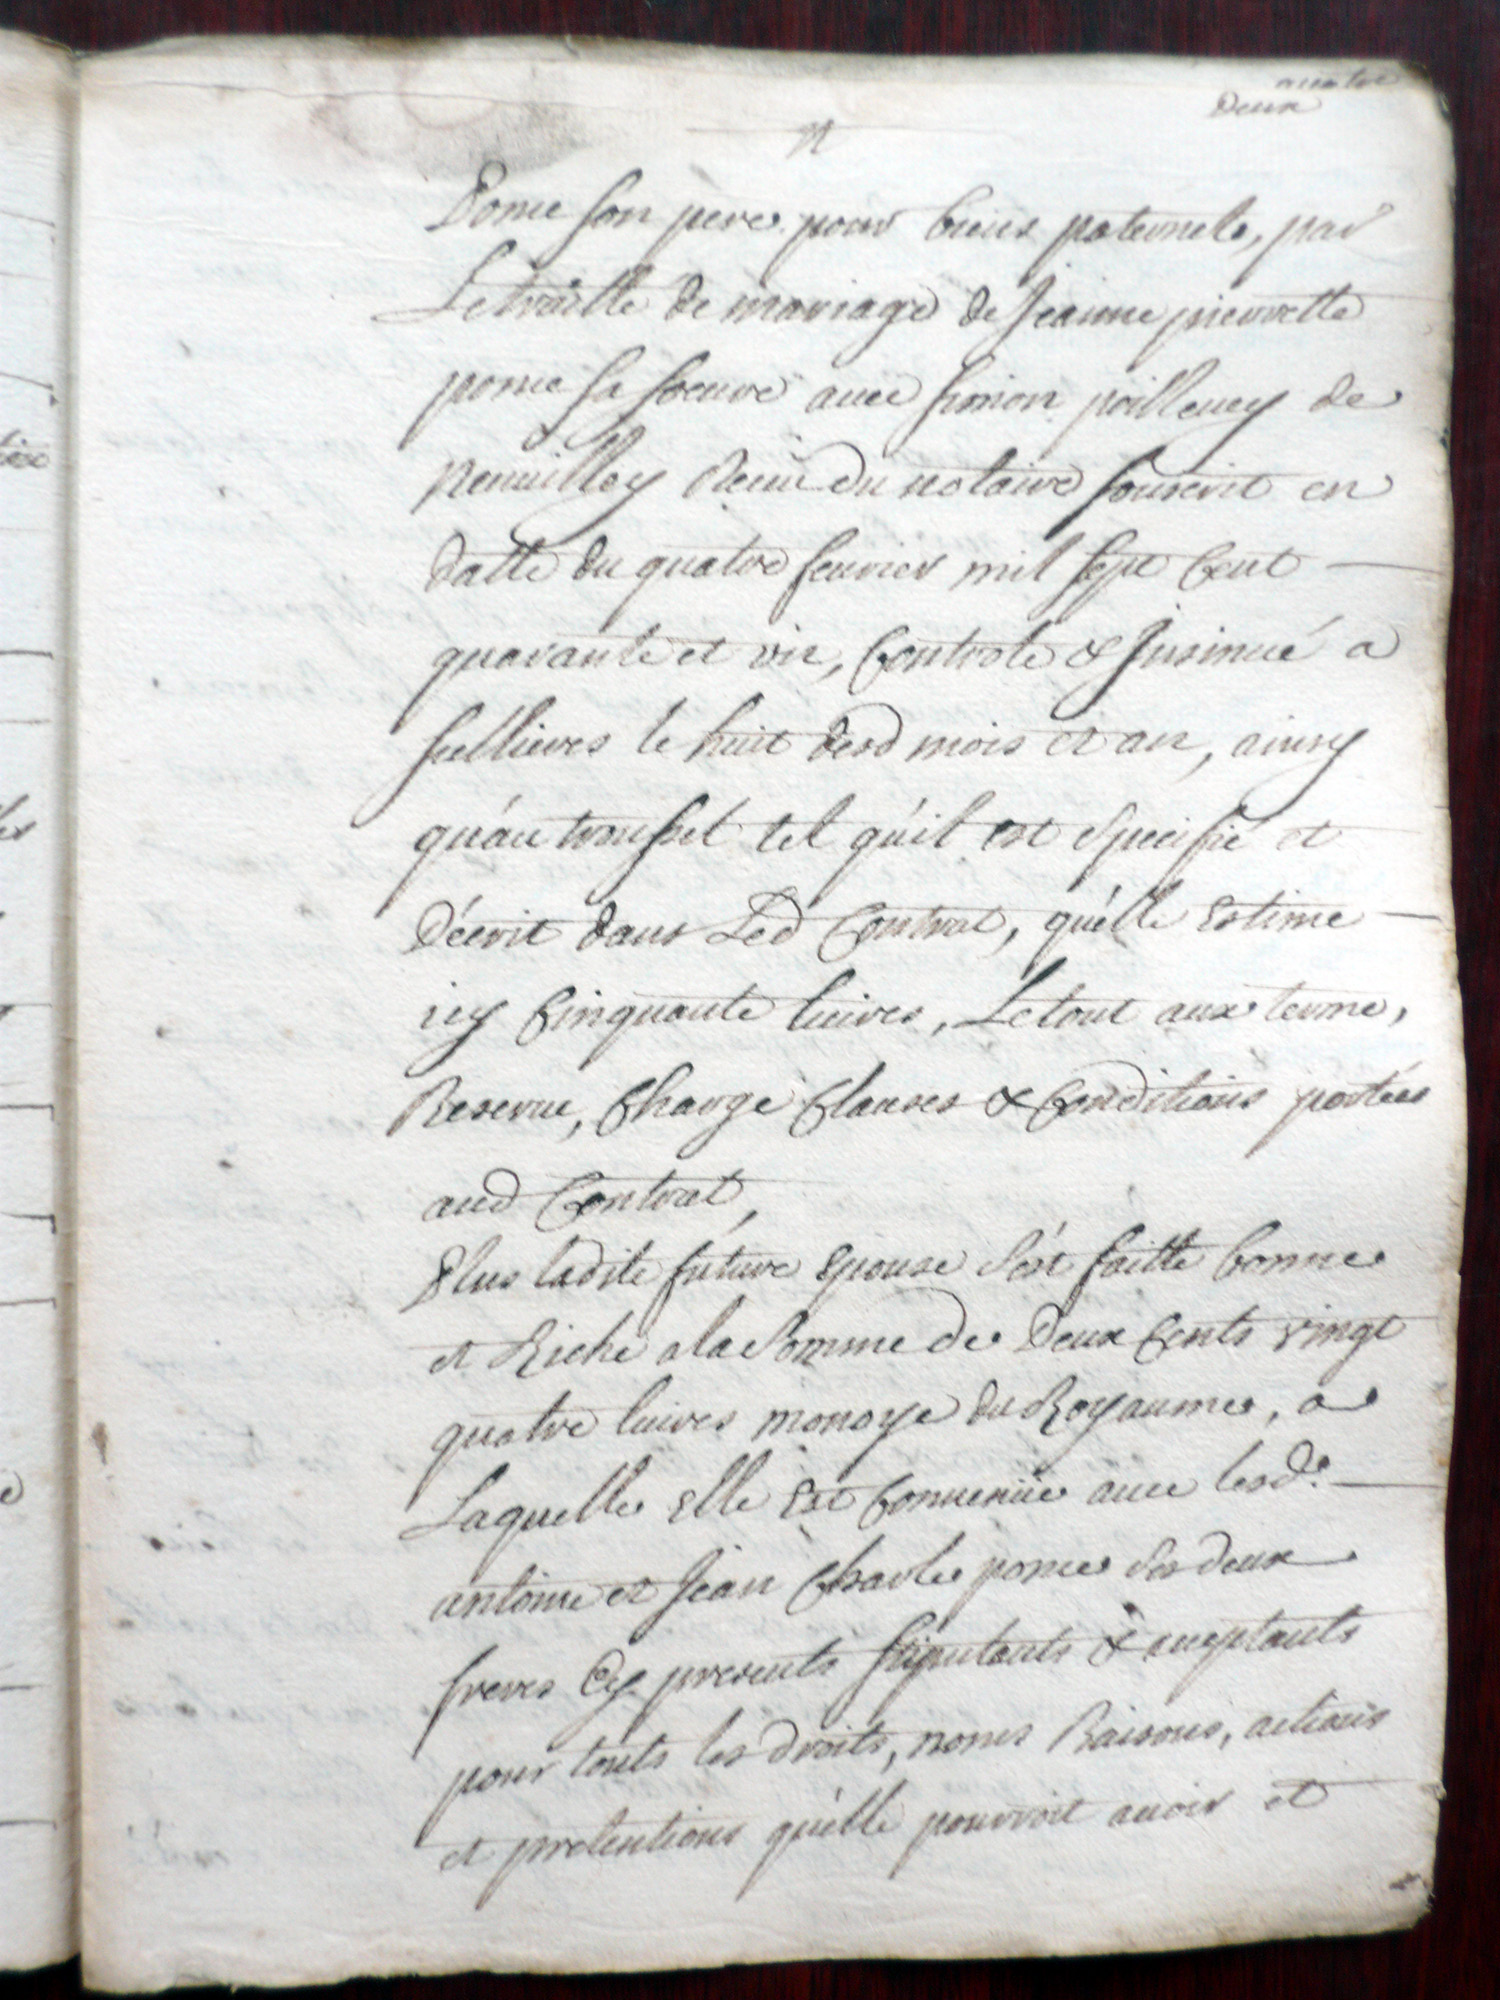 quatre
Deux
Ponce son pere pour biens paternels, par
Letraitte de mariage de Jeanne pierrette
ponce sa soeure avec simon poilleuey de
Reculley Receu du notaire souscrit en
datte du quatre feurier mil sept Cent
quarante et un, Controlé & Jnsinué a
sellieres le huit desd mois et an, ainsy
qu'au troussel tel qu'il est specifié et
Décrit dans Led Contrat, qu'elle Estime
icy Cinquante liures, Le tout aux terme,
Reserue, Charge Clauses & Conditions portées
aud Contrat,
Plus ladite future Epouse s'est faitte bonne
et Riche a la somme de Deux Cents vingt
quatre liures monoye du Royaume, a
Laquelle Elle Est Conuenüe auec lesd.
antoine et Jean Charle ponce ses deux
freres Cy presents stipulants & aceptants
pour touts les droits, noms Raisons, actions
et pretentions qu'elle pourroit auoir et